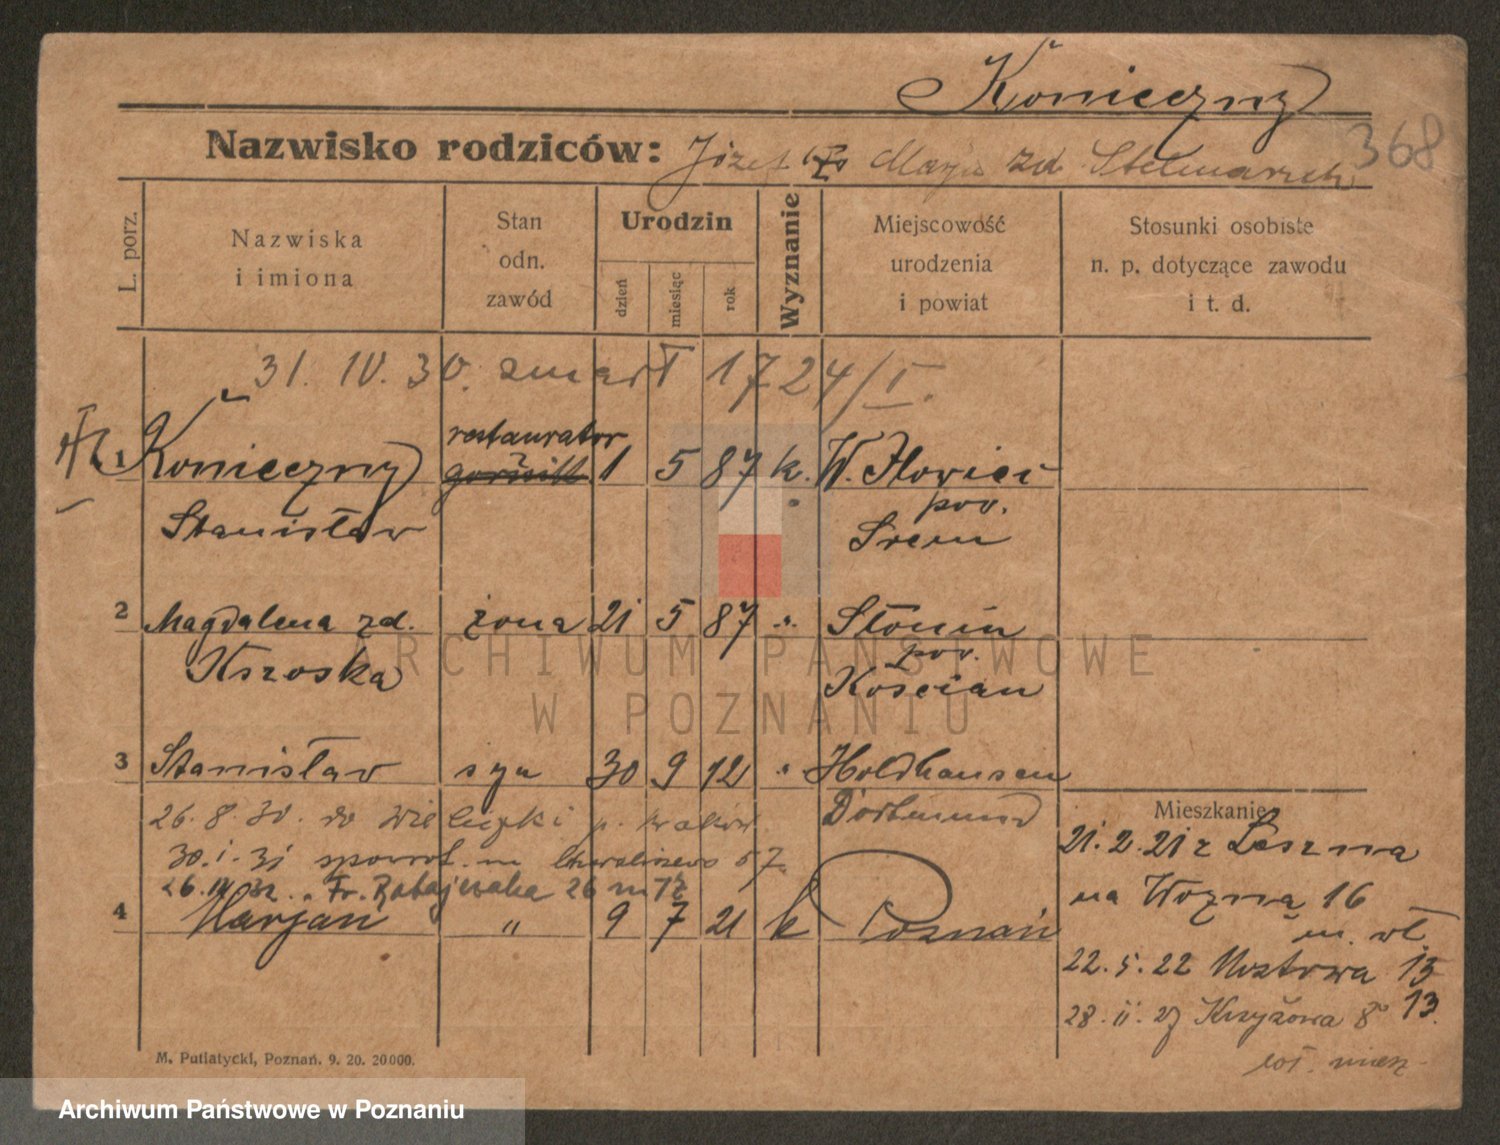 Koniczny
368
Nazwisko rodziców: Józef Marja zd. Stelmaszek
L. porz.
Nazwiska
i imiona
Stan
odn.
zawód
Urodzin
dzień
miesiąc
rok
Wyznanie
Miejscowość
urodzenia
i powiat
Stosunki osobiste
n. p. dotyczące zawodu
i t. d.
31. IV. 30. zmarł 1724/I.
restaurator
1 Konieczny 1 5 87 k. W. Iłowiec
Stanisław pow.
Śrem
2 Magdalena zd. żona 21 5 87 " Słonin
Kszoska pow.
Kościan
3 Stanisław syn 30 9 12 " Holdhausen
Dortmund
26.8.30. do Wieliczki p. Kraków
30.1.31 spowrot
26. Fr. Ratajczaka 26 m 12
4 Marjan " 9 7 21 k Poznań
Mieszkanie
21.2.21 z Leszna
na Woźną 16
m. wł.
22.5.22 Mostowa 13
28.11.27 Krzyżowa 8 13.
M. Putiatycki, Poznań. 9. 20. 20000.
ARCHIWUM PAŃSTWOWE
W POZNANIU
Archiwum Państwowe w Poznaniu